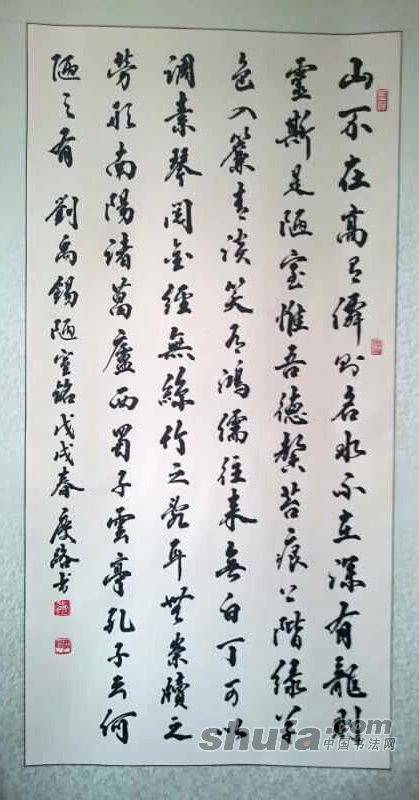 山不在高有僊則名水不在深有龍則
靈斯是陋室惟吾德馨苔痕上階綠草
色入簾青談笑有鴻儒往來無白丁可以
調素琴閱金經無絲竹之亂耳無案牘之
勞形南陽諸葛廬西蜀子雲亭孔子云何
陋之有 劉禹錫陋室銘戊戌春慶路书
shufa.com
中国书法网